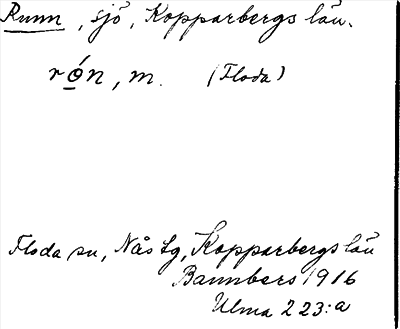 Runn, sjö, Kopparbergs län.
rǫ́n, m. (Floda)
Floda sn, Nås tg, Kopparbergs län
Bannbers 1916
Ulma 223:a